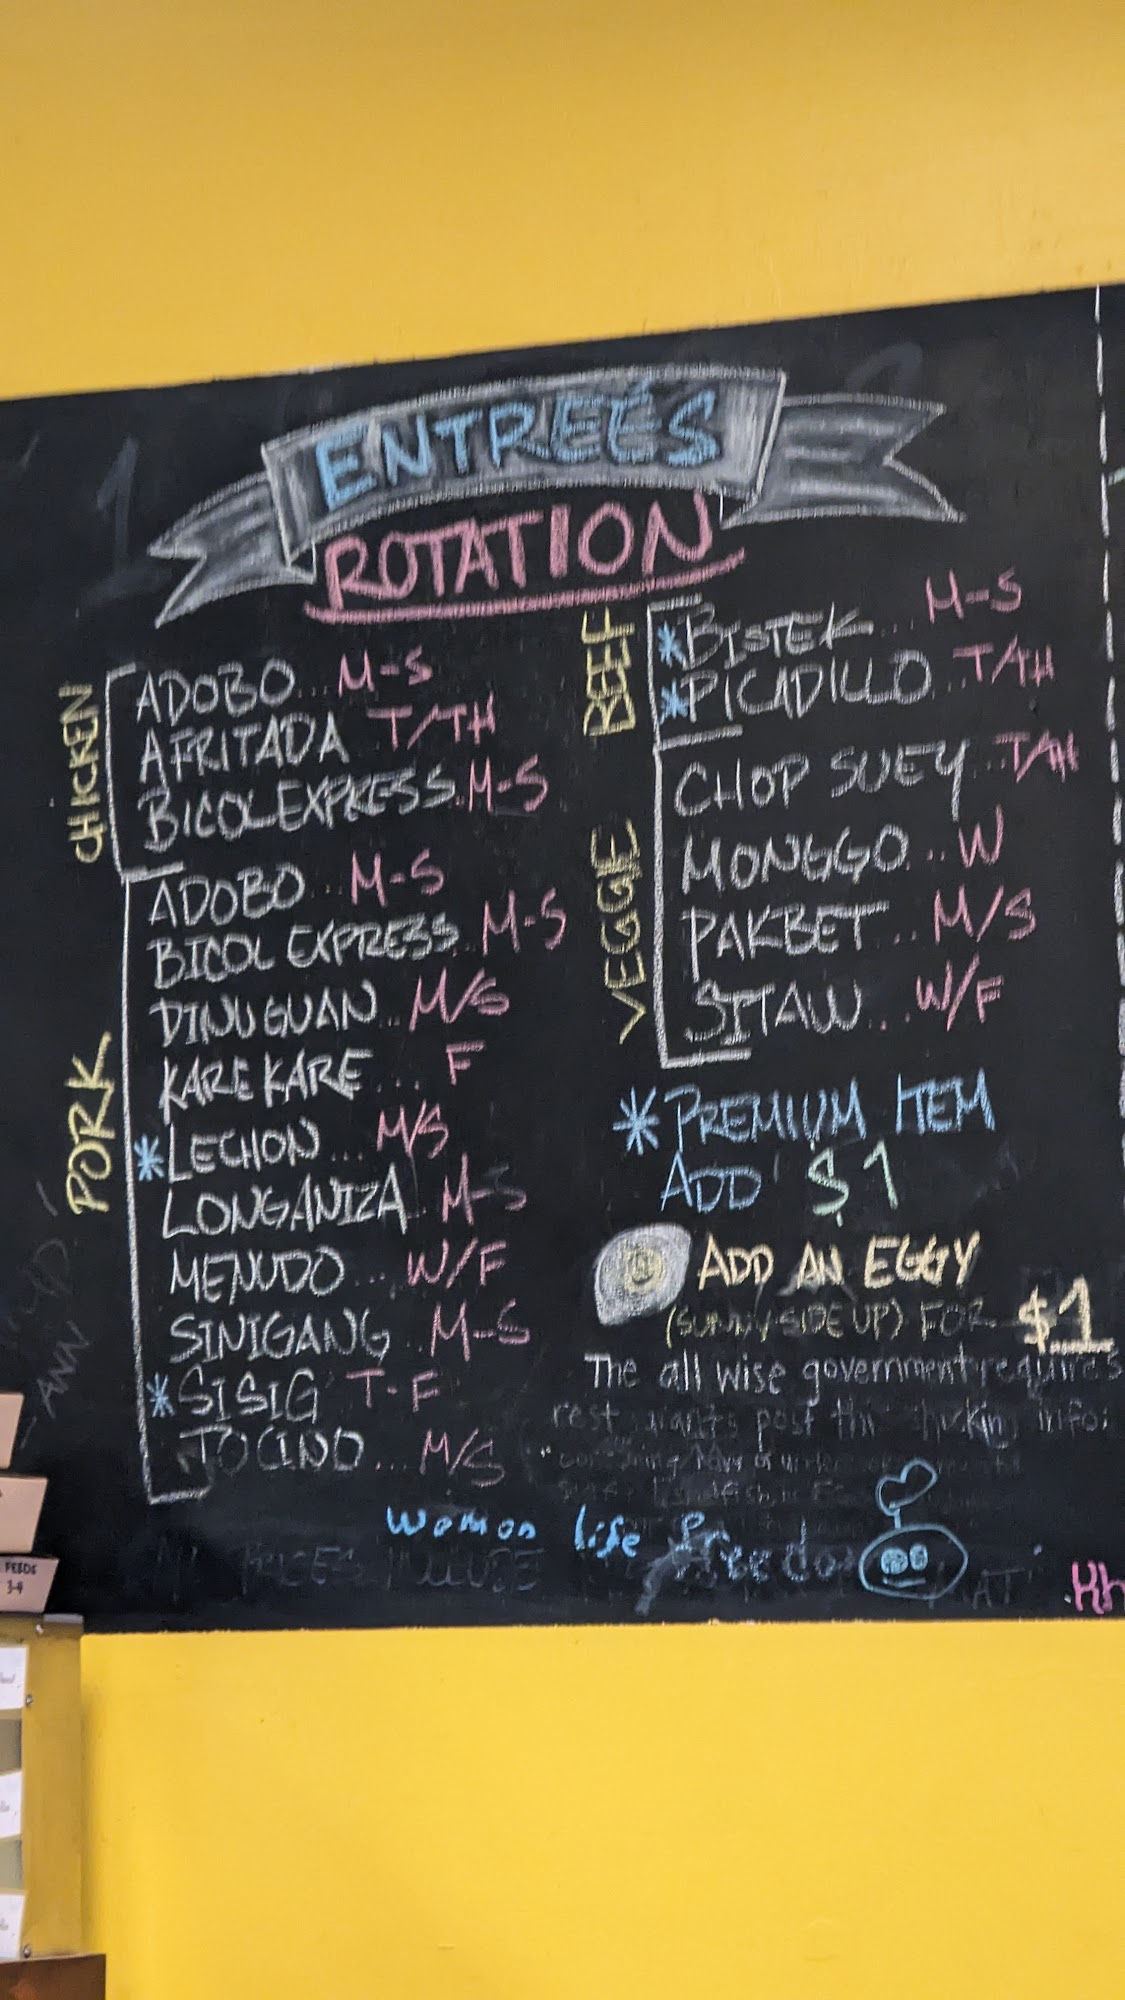 ENTREÉS
ROTATION
CHICKEN
ADOBO... M-S
AFRITADA T/TH
BICOL EXPRESS.. M-S
PORK
ADOBO... M-S
BICOL EXPRESS.. M-S
DINUGUAN.. M/S
KARE KARE... F
*LECHON... M/S
LONGANIZA M-S
MENUDO... W/F
SINIGANG.. M-S
*SISIG T-F
TOCINO... M/S
BEEF
*BISTEK... M-S
*PICADILLO.. T/TH
VEGGIE
CHOP SUEY... T/TH
MONGGO... W
PAKBET... M/S
SITAW... W/F
*PREMIUM ITEM
ADD $1
ADD AN EGGY
(SUNNY SIDE UP) FOR $1
The all wise government requires
post info:
women life freedom
FEEDS
3-4